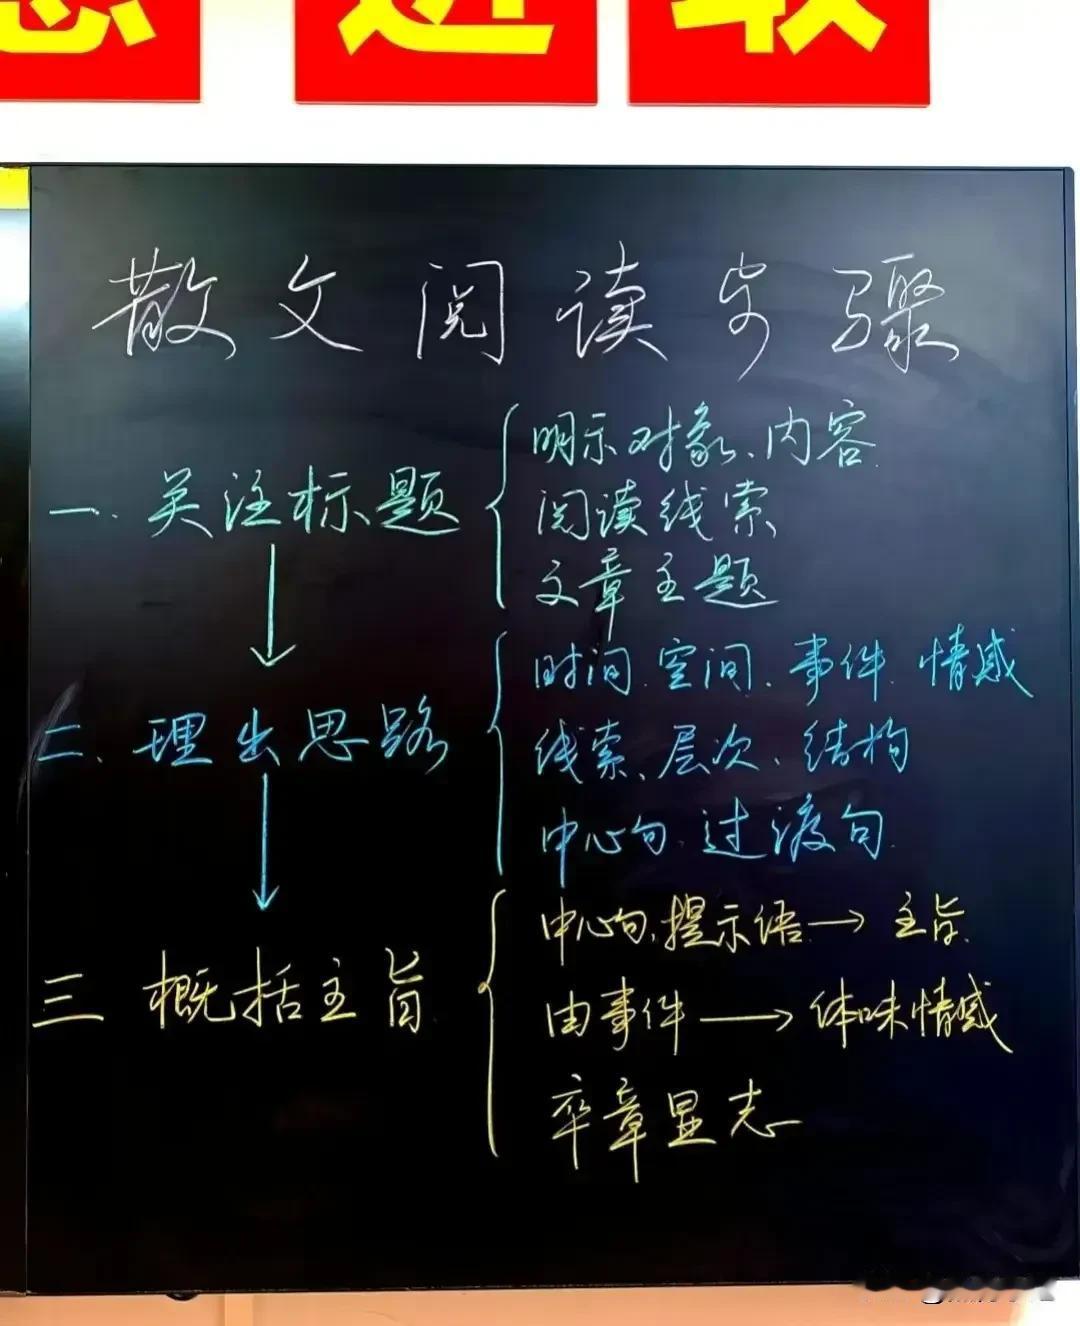 进取
散文阅读步骤
一、关注标题
明示对象、内容
阅读线索
文章主题
二、理出思路
时间、空间、事件、情感
线索、层次、结构
中心句、过渡句
三 概括主旨
中心句、提示语→主旨
由事件→体味情感
卒章显志